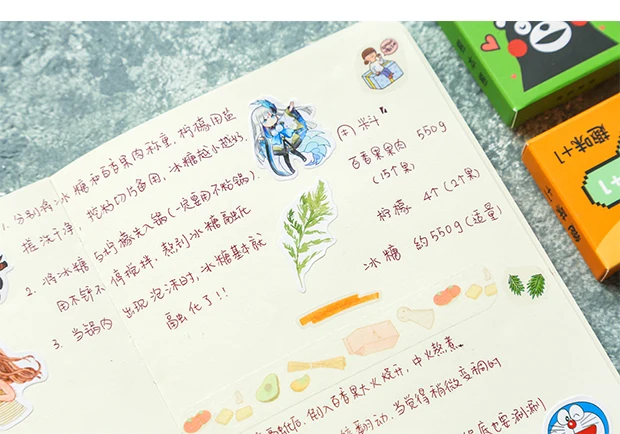 1. 分别将冰糖和百香果肉称重，柠檬用盐
搓洗干净，挖籽切片备用，冰糖越小越好
2. 将冰糖与柠檬先入锅(一定要用不粘锅)
用不锈 停搅拌，熬到冰糖融化
3. 当锅内出现泡沫时，冰糖基本就
融化了!!
用料
百香果果肉 550g
(15个果)
柠檬 4个(2个果)
冰糖 约550g(适量)
倒入百香果大火烧开，中火熬煮
翻动，当觉得稍微变稠的
底也要涮涮
趣味+1
+1